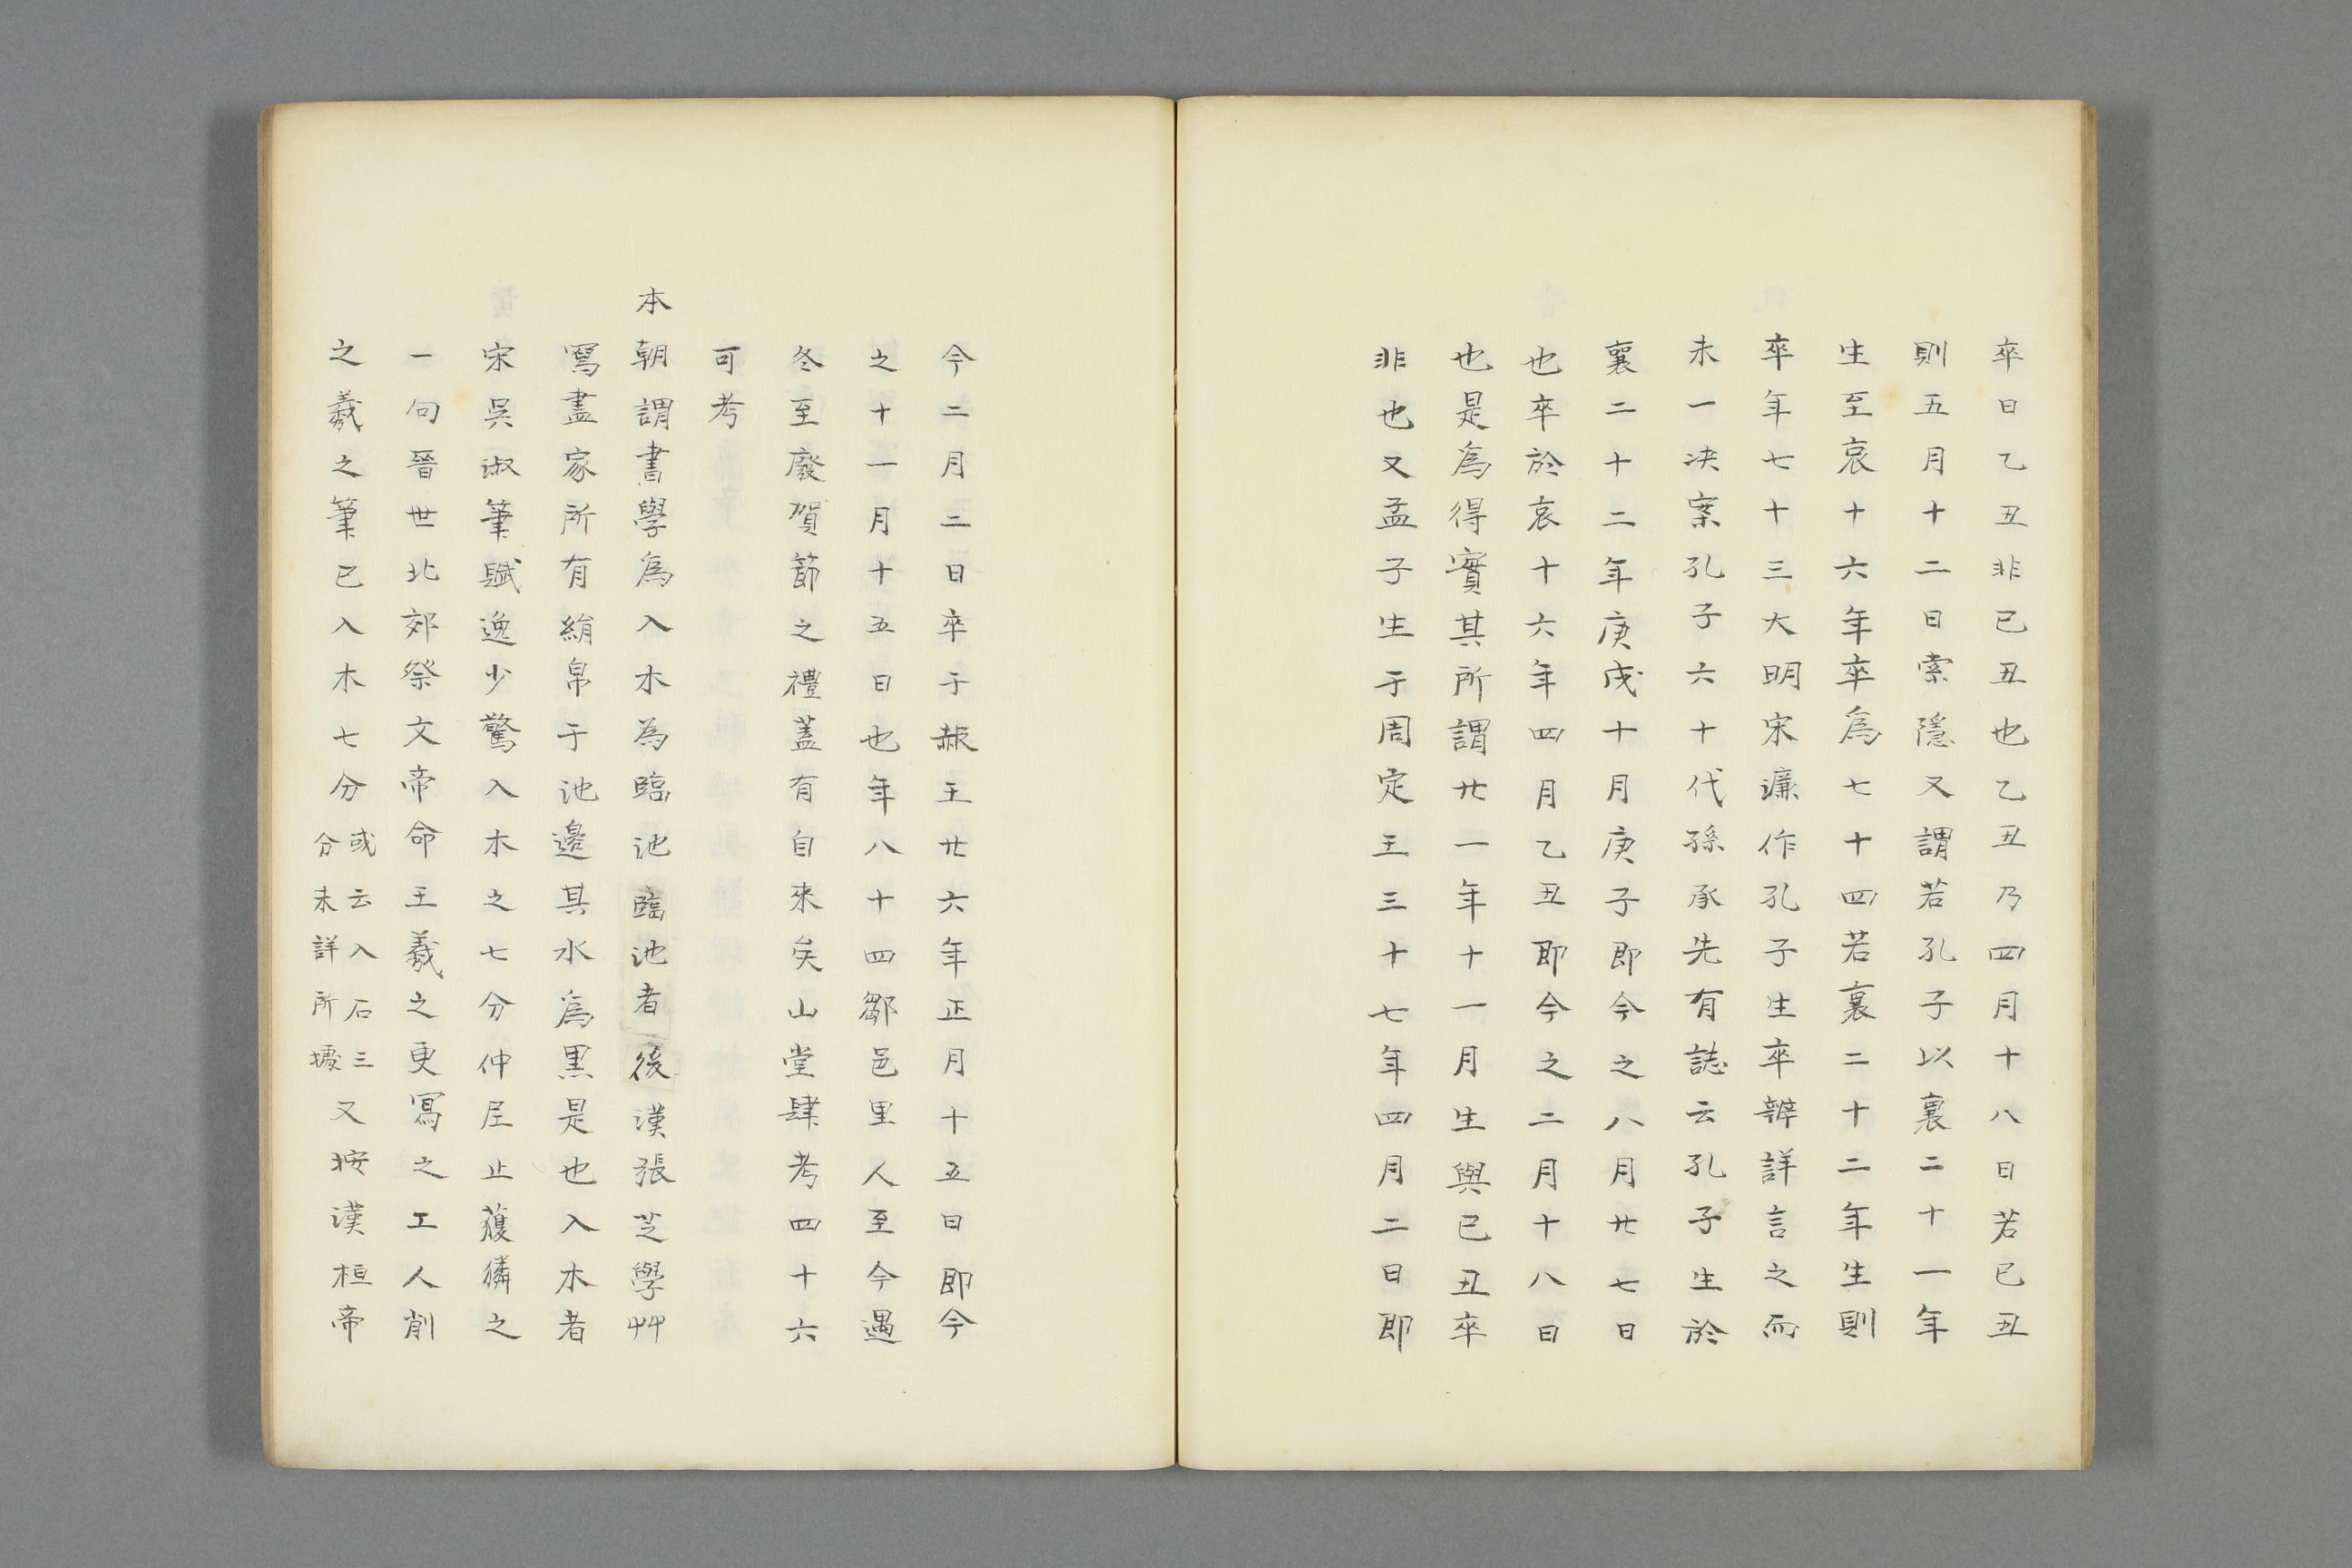 卒日乙丑非已丑也乙丑乃四月十八日若已丑
則五月十二日索隱又謂若孔子以襄二十一年
生至哀十六年卒爲七十四若襄二十二年生則
卒年七十三大明宋濂作孔子生卒辨詳言之而
未一决案孔子六十代孫承先有誌云孔子生於
襄二十二年庚戌十月庚子即今之八月廿七日
也卒於哀十六年四月乙丑即今之二月十八日
也是爲得實其所謂廿一年十一月生與已丑卒
非也又孟子生于周定王三十七年四月二日即
今二月二日卒于赧王廿六年正月十五日即今
之十一月十五日也年八十四鄒邑里人至今遇
冬至廢賀節之禮蓋有自來矣山堂肆考四十六
可考
本朝謂書學爲入木為臨池臨池者後漢張芝學艸
寫盡家所有絹帛于池邊其水爲黒是也入木者
宋呉淑筆賦逸少驚入木之七分仲尼止獲獜之
一句晉世北郊祭文帝命王羲之更寫之工人削
之羲之筆已入木七分或云入石三分未詳所據又按漢桓帝